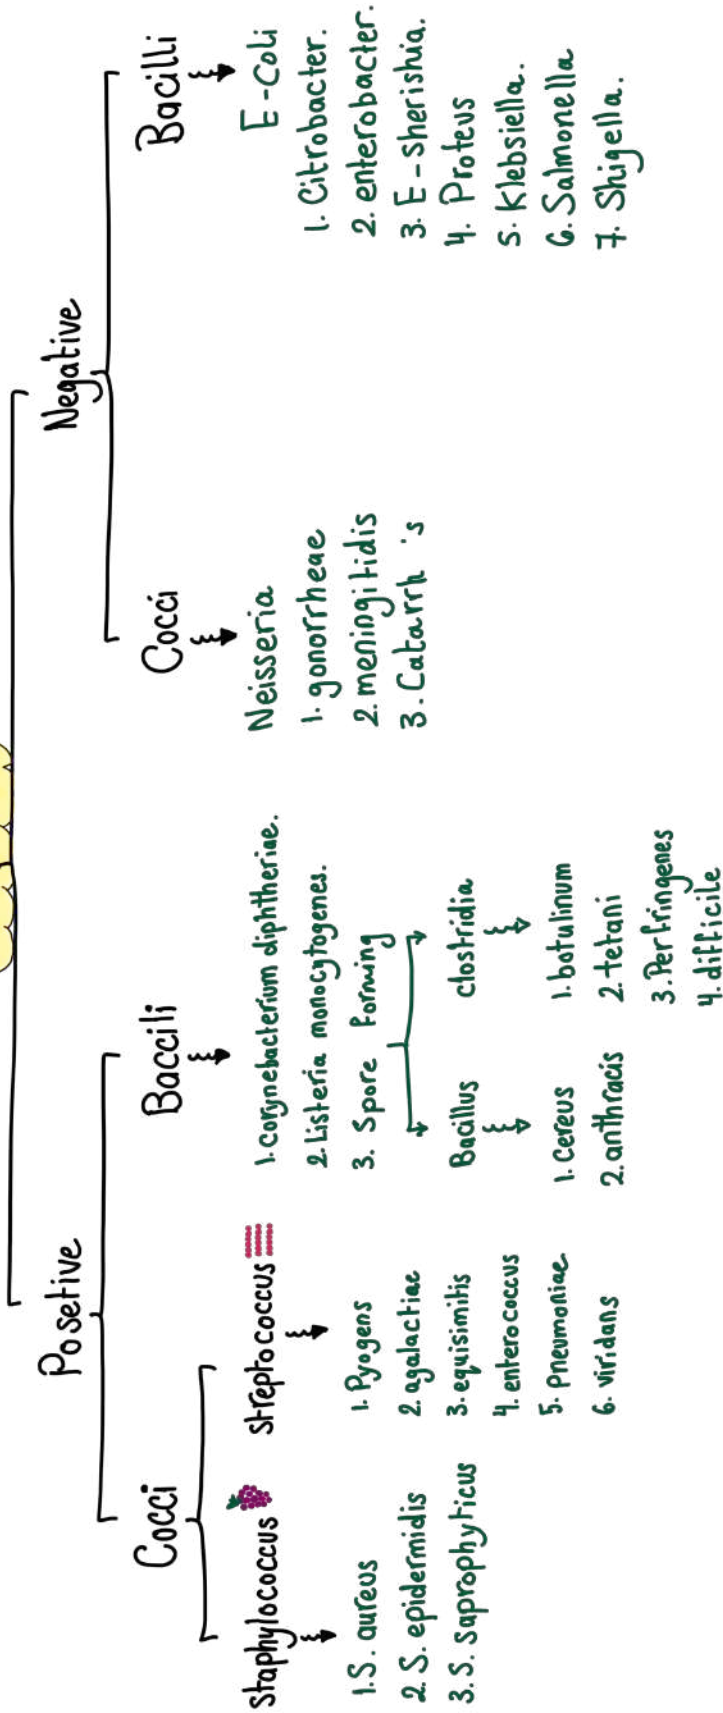 Posetive
Negative
Cocci
Baccili
Cocci
Bacilli
staphylococcus
1. S. aureus
2. S. epidermidis
3. S. Saprophyticus
streptococcus
1. Pyogens
2. agalactiae
3. equisimitis
4. enterococcus
5. pneumoniae
6. viridans
1. corynebacterium diphtheriae.
2. Listeria monocytogenes.
3. Spore Forming
Bacillus
1. Cereus
2. anthracis
clostridia
1. botulinum
2. tetani
3. Perfringenes
4. difficile
Neisseria
1. gonorrheae
2. meningitidis
3. Catarrh is
E-Coli
1. Citrobacter.
2. enterobacter.
3. E-sherishia.
4. Proteus
5. Klebsiella.
6. Salmonella
7. Shigella.